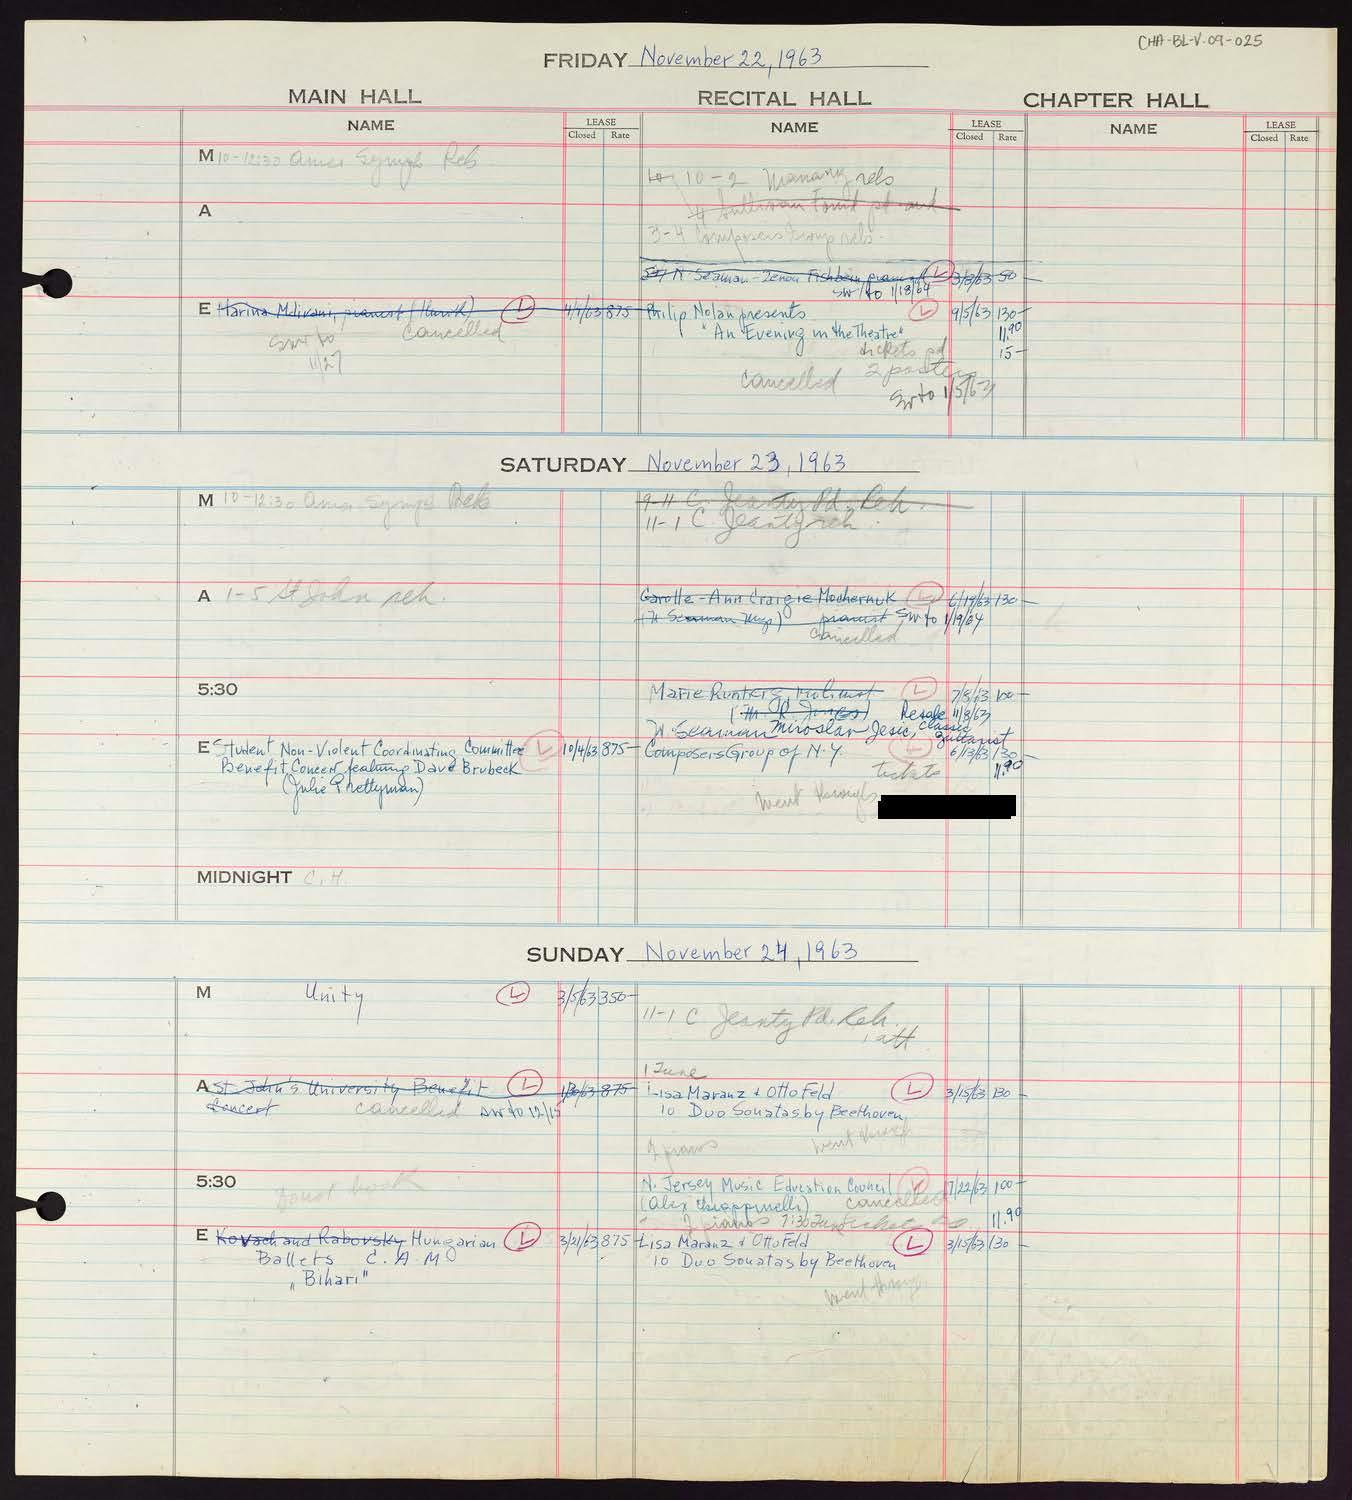 CHA-BL-V.09-025
FRIDAY November 22, 1963
MAIN HALL RECITAL HALL CHAPTER HALL
NAME LEASE Closed Rate NAME LEASE Closed Rate NAME LEASE Closed Rate
M 10-12:30 Amer Symph Reh
10-2 Manany reh
A
4 Sullivan Found pd and
3-4 Composers Group reh.
N. Seaman - Zenon Fishbein pianist L 3/8/63 50-
sw to 1/18/64
E Harina Mdivani, pianist (Hurok) L 4/4/63 875-
cancelled
sw to
11/27
Philip Nolan presents L 9/5/63 130-
"An Evening in the Theatre" 11.90
tickets pd 15-
2 posters
cancelled
Sw to 1/5/63
SATURDAY November 23, 1963
M 10-12:30 Amer Symph Reh
9-11 C. Jeanty Pd. Reh.
11-1 C Jeanty reh.
A 1-5 St John reh.
Garotte-Ann Craigie Mochernuk L 6/19/63 130-
(N Seaman Mgs) pianist sw to 1/19/64
cancelled
5:30
Marie Runters, violinist L 7/8/63 100-
(M. R. Jones) Resale 11/8/63
N. Seaman Miroslav Jesic, classic
guitarist
E Student Non-Violent Coordinating Committee L 10/4/63 875-
Benefit Concert featuring Dave Brubeck
(Julie Prettyman)
Composers Group of N.Y. L 6/13/63 130-
tickets 11.90
went through
MIDNIGHT C.H.
SUNDAY November 24, 1963
M Unity L 3/5/63 350-
11-1 C Jeanty Pd. Reh.
1 att
A St. John's University Benefit L 875-
Concert cancelled sw to 12/15
1 Tune
Lisa Maranz & Otto Feld L 3/15/63 130-
10 Duo Sonatas by Beethoven
2 pianos went through
5:30 Do not book
N. Jersey Music Education Council L 7/22/63 100-
cancelled
2 pianos 7:30 11.90
E Kovach and Rabovsky Hungarian L 3/21/63 875-
Ballets C.A.M.
"Bihari"
Lisa Maranz & Otto Feld L 3/15/63 130-
10 Duo Sonatas by Beethoven
went through